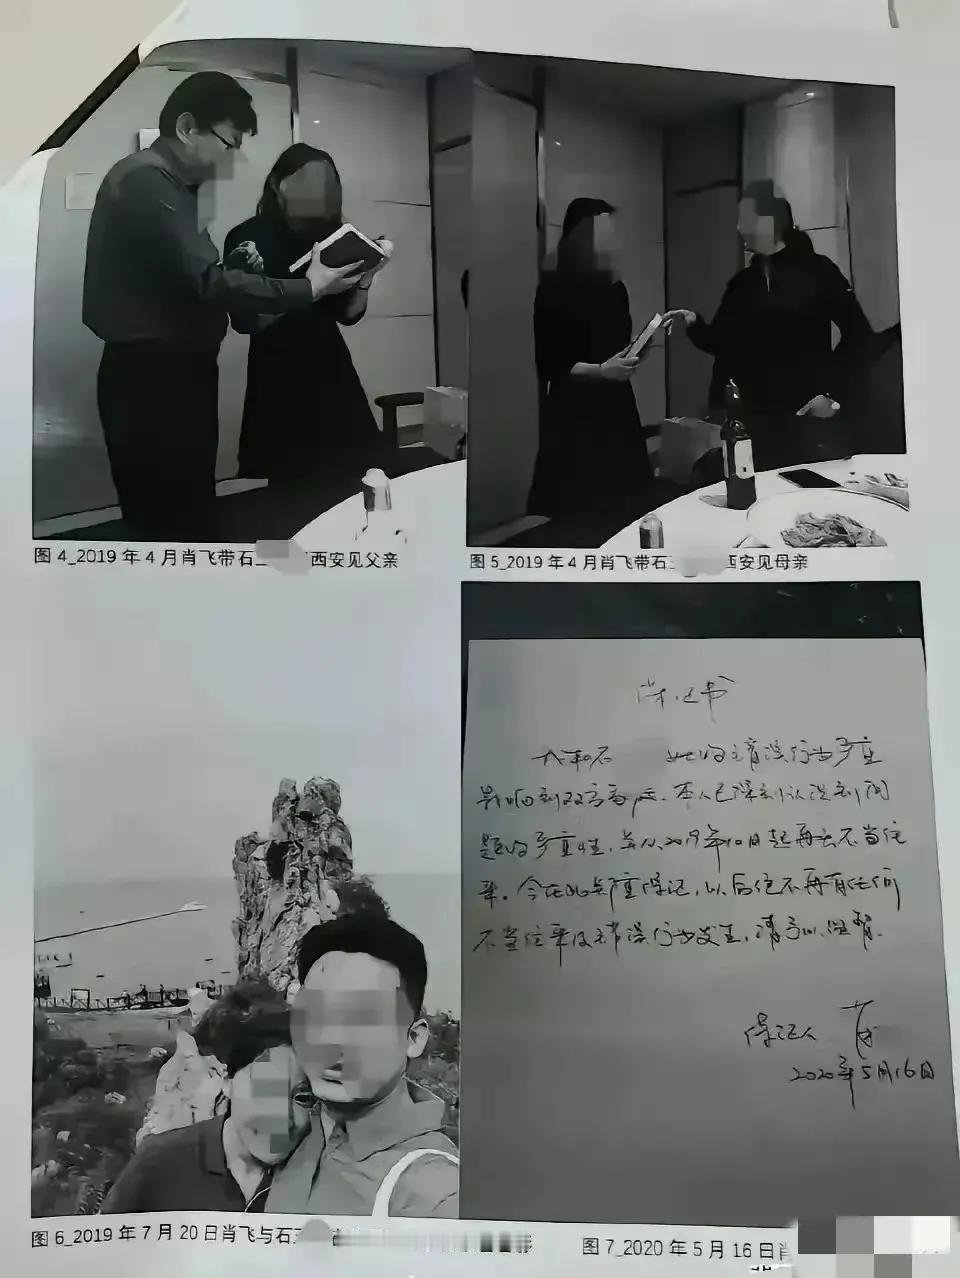 图 4_2019 年 4 月肖飞带石 西安见父亲
图 5_2019 年 4 月肖飞带石 西安见母亲
保证书
我和石 的错误行为严重
影响到双方家庭。本人已深刻认识到问
题的严重性，并从2019年10月起再无不当往
来。今在此严重保证，以后绝不再有任何
不当往来及错误行为发生，请予以监督。
保证人 肖
2020年5月16日
图 6_2019 年 7 月 20 日肖飞与石
图 7_2020 年 5 月 16 日肖